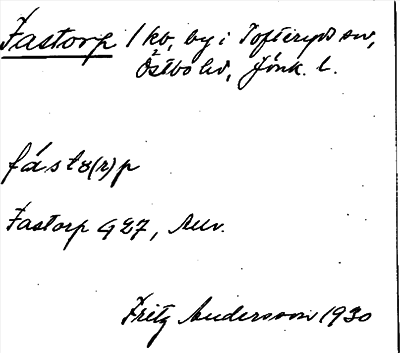 Fastorp 1/2 kv, by i Tofteryds sn,
Östbo hd, Jönk. l.
fástɷ(r)p
Fastorp G 27, Auv.
Fritz Andersson 1930